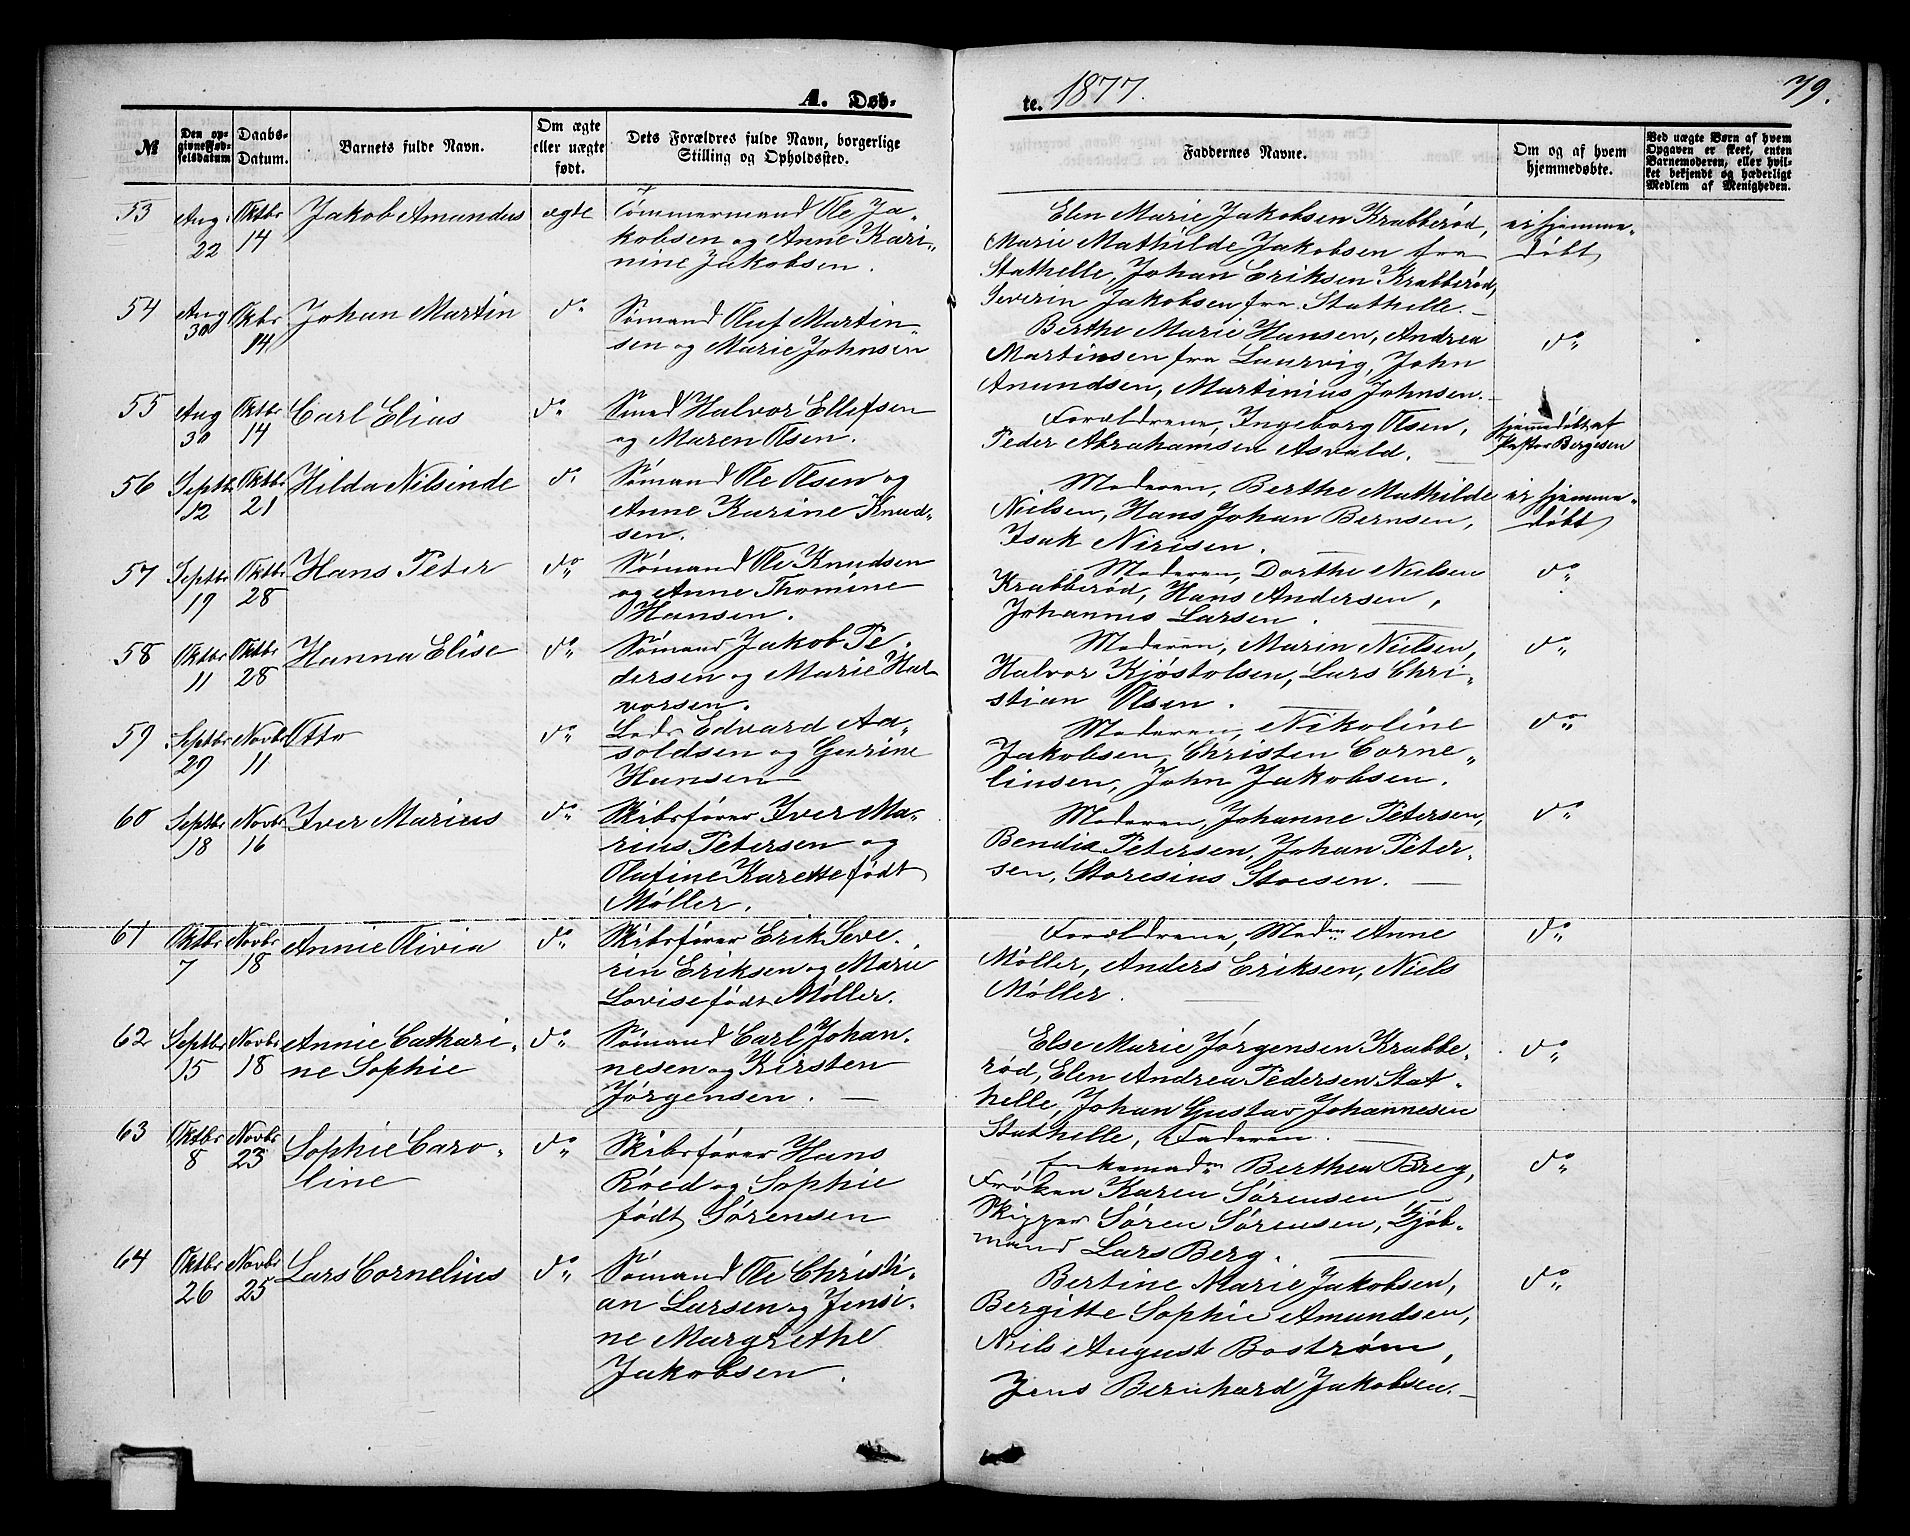 A. Døb-
te. 1877.
79.
№
Den op-
givne Fød-
selsdatum
Daabs-
Datum.
Barnets fulde Navn.
Om ægte
eller uægte
født.
Dets Forældres fulde Navn, borgerlige
Stilling og Opholdssted.
Faddernes Navne.
Om og af hvem
hjemmedøbte.
Ved uægte Børn af hvem
Opgaven er skeet, enten
Barnemoderen, eller hvil-
ket bekjendt og hæderligt
Medlem af Menigheden.
53
Aug
22
Oktbr
14
Jakob Amandus
ægte
Tømmermand Ole Ja-
kobsen og Anne Kari-
nine Jakobsen.
Elen Marie Jakobsen Krabberød,
Marie Mathilde Jakobsen fra
Stathelle, Johan Eriksen Krabberød,
Severin Jakobsen fra Stathelle.
er hjemme-
døbt
54
Aug
30
Okbr
14
Johan Martin
do
Sømand Oluf Martin-
sen og Marie Johnsen
Berthe Marie Hansen, Andrea
Martinsen fra Laurvig, John
Anundsen, Martinius Johnsen.
do
55
Aug
30
Oktbr
14
Carl Elias
do
Smed Halvor Ellefsen
og Maren Olsen.
Forældrene, Ingeborg Olsen,
Peder Abrahamsen Asvald.
hjemmedøbt af
Pastor Bergesen
56
Septbr
12
Oktbr
21
Hilda Nilsinde
do
Sømand Ole Olsen og
Anne Karine Knud-
sen.
Moderen, Berthe Mathilde
Nielsen, Hans Johan Bernsen,
Isak Nirisen.
er hjemme-
døbt
57
Septbr
19
Oktbr
28
Hans Peter
do
Sømand Ole Knudsen
og Anne Thomine
Hansen.
Moderen, Dorthe Nielsen
Krabberød, Hans Andersen,
Johannes Larsen.
do
58
Oktbr
11
Oktbr
28
Hanna Elise
do
Sømand Jakob Pe-
dersen og Marie Hal-
vorsen.
Moderen, Marin Nielsen,
Halvor Kjøstolsen, Lars Chri-
stian Olsen.
do
59
Septbr
29
Novbr
11
Otto
do
Lods Edvard Ad-
soldsen og Gurine
Hansen
Moderen, Nikoline
Jakobsen, Christen Corne-
liusen, John Jakobsen.
do
60
Septbr
18
Novbr
16
Iver Marius
do
Skibsfører Iver Ma-
rius Petersen og
Olufine Karette født
Møller.
Moderen, Johanne Petersen,
Bendix Petersen, Johan Peter-
sen, Storesius Stoesen.
do
61
Oktbr
7
Novbr
18
Annie Olivia
do
Skibsfører Erik Seve-
rin Eriksen og Marie
Lovise født Møller.
Forældrene, Madm Anne
Møller, Anders Eriksen, Niels
Møller.
do
62
Septbr
15
Novbr
18
Annie Cathari-
ne Sophie
do
Sømand Carl Johan-
nesen og Kirsten
Jørgensen.
Else Marie Jørgensen Krabbe-
rød, Elen Andrea Pedersen Stat-
helle, Johan Gustav Johannesen
Stathelle, Faderen.
do
63
Oktbr
8
Novbr
23
Sophie Caro-
line
do
Skibsfører Hans
Røed og Sophie
født Sørensen
Enkemadm Berthea Breg,
Frøken Karen Sørensen
Skipper Søren Sørensen, Kjøb-
mand Lars Berg.
do
64
Oktbr
26
Novbr
25
Lars Cornelius
do
Sømand Ole Christi-
an Larsen og Jensi-
ne Margrethe
Jakobsen.
Bertine Marie Jakobsen,
Bergitte Sophie Amundsen,
Niels August Bostrøm,
Jens Bernhard Jakobsen.
do